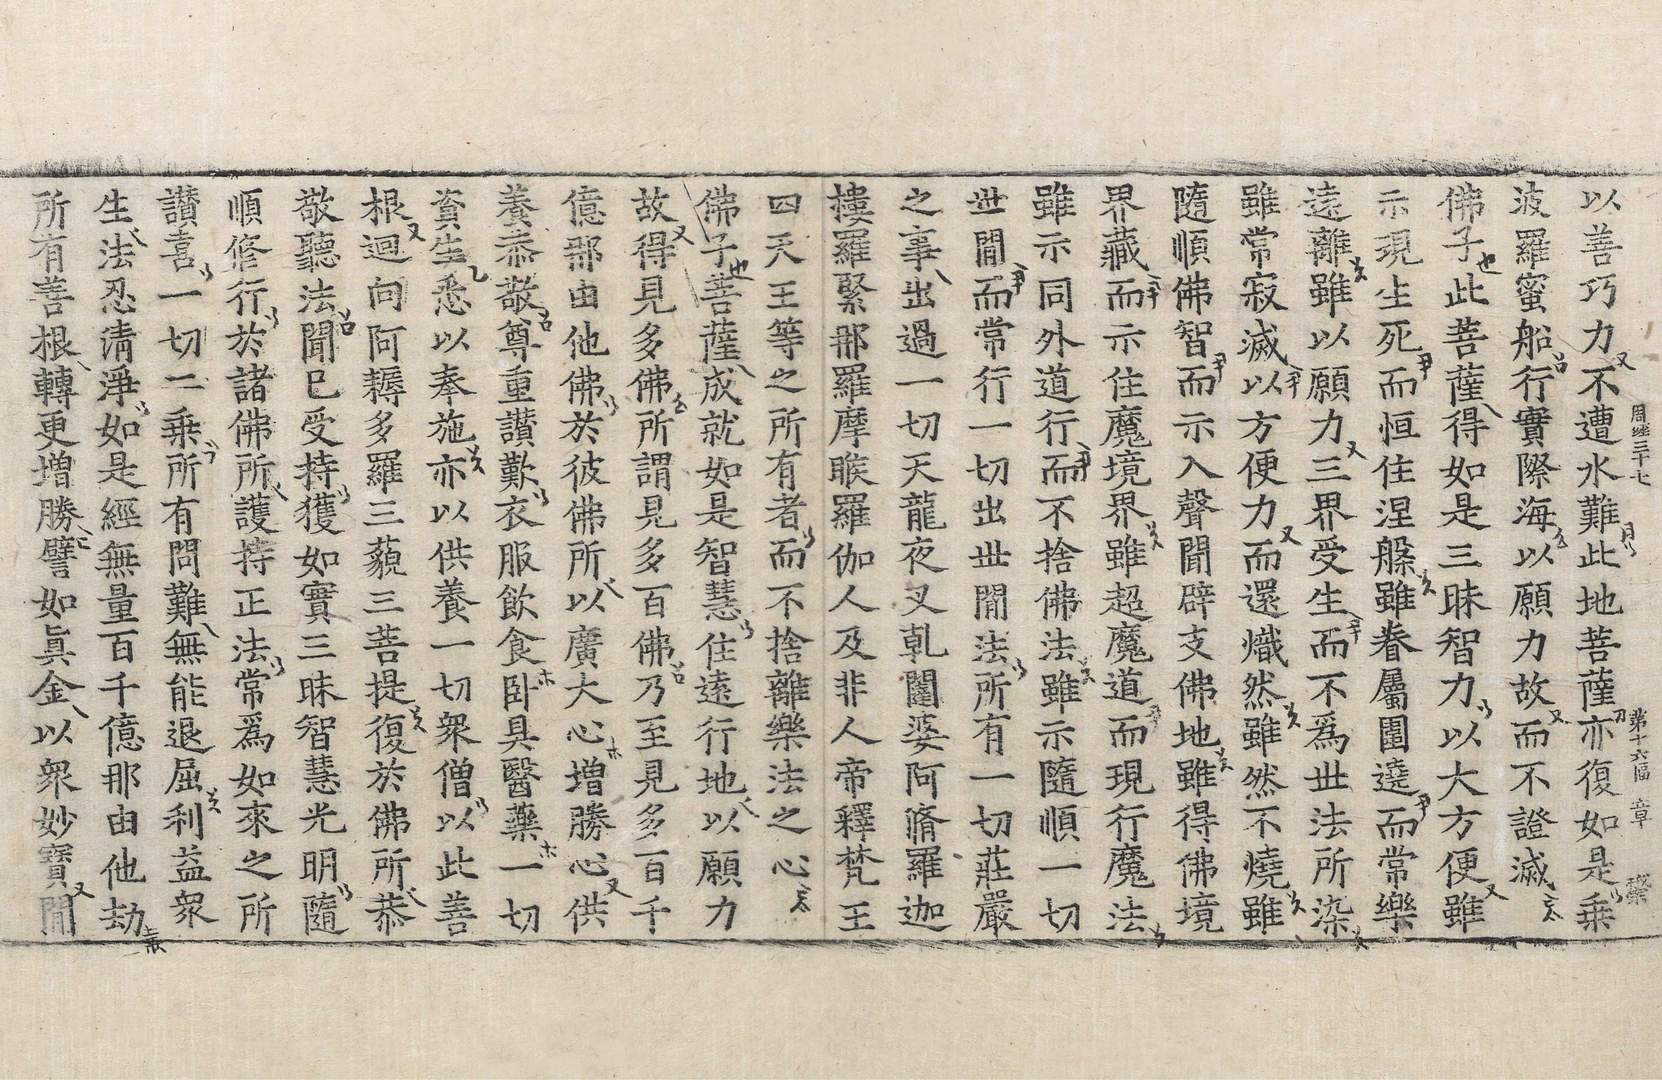 以善巧力不遭水難此地菩薩亦復如是乘
波羅蜜船行實際海以願力故而不證滅
佛子此菩薩得如是三昧智力以大方便雖
示現生死而恒住涅槃雖眷屬圍遶而常樂
遠離雖以願力三界受生而不為世法所染
雖常寂滅以方便力而還熾然雖然不燒雖
隨順佛智而示入聲聞辟支佛地雖得佛境
界藏而示住魔境界雖超魔道而現行魔法
雖示同外道行而不捨佛法雖示隨順一切
世閒而常行一切出世閒法所有一切莊嚴
之事出過一切天龍夜叉乹闥婆阿脩羅迦
樓羅緊那羅摩睺羅伽人及非人帝釋梵王
四天王等之所有者而不捨離樂法之心
佛子菩薩成就如是智慧住遠行地以願力
故得見多佛所謂見多百佛乃至見多百千
億那由他佛於彼佛所以廣大心增勝心供
養恭敬尊重讚歎衣服飲食卧具醫藥一切
資生悉以奉施亦以供養一切衆僧以此善
根迴向阿耨多羅三藐三菩提復於佛所恭
敬聽法聞已受持獲如實三昧智慧光明隨
順修行於諸佛所護持正法常爲如來之所
讚喜一切二乘所有問難無能退屈利益衆
生法忍清淨如是經無量百千億那由他劫
所有善根轉更增勝譬如眞金以衆妙寶閒
周經三十七 第十六幅 章